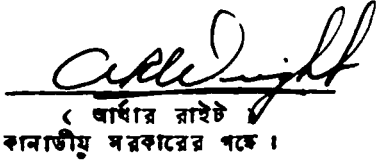 ARWright
( আর্থার রাইট )
কানাডীয় সরকারের পক্ষে ।